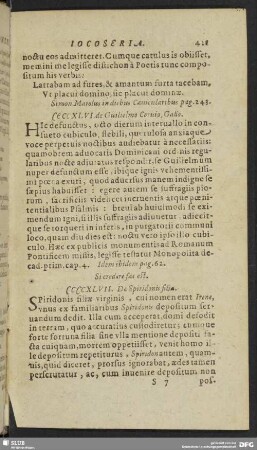 IOCOSERIA. 421
noctu eos admitteret. Cumque catulus is obiisset,
memini me legisse distichon à Poetis tunc compositum
his verbis:
Latrabam ad fures, & amantum furta tacebam,
Vt placui domino, sic placui dominæ.
Simon Maiolus in diebus Canicularibus pag. 243.
CCCCXLVI. de Guilielmo Corvio, Gallo.
HIc defunctus, octo dierum intervallo in consueto
cubiculo, flebili, querulosa anxiaque
voce perpetuis noctibus audiebatur à necessariis:
quamobrem advocatis Dominicani ordinis regularibus
nocte adiuratus respondisse Guilielmum
nuper demortuum esse, ibique ignis vehementissimi
pœna exuri, quod adversus matrem indigne se
sæpius habuisset: egere autem se suffragiis piorum,
sacrificiis videlicet
Psalmis: brevi ab huiusmodi se eximendum
igni, si illis suffragiis adiuvetur. adiecitque
se torqueri in
quam diu dies est: noctu vero ipso illo cubiculo.
Hæc ex publicis monumentis ad Romanum
Pontificem missis, legisse testatur Monopolita decad.
prim. cap. 4. Idem ibidem pag. 62.
Si credere fas est.
CCCCXLVII. De Spiridonis filia.
SPiridonis filiæ virginis, cui nomen erat Irene,
unus ex familiaribus Spiridonis depositum servandum
dedit. Illa cum acceperat, domi defodit
in terram, quo accuratius custodiretur; cumque
forte fortuna filia sine ulla mentione depositi facta
cuiquam, mortem oppetiisset, venit homo ille
depositum repetiturus, Spiridon autem, quamvis,
quid diceret, prorsus ignorabat, ædes tamen
perscrutatur, ac, cum invenire depositum non
S 7 pos-
SLUB
DFG